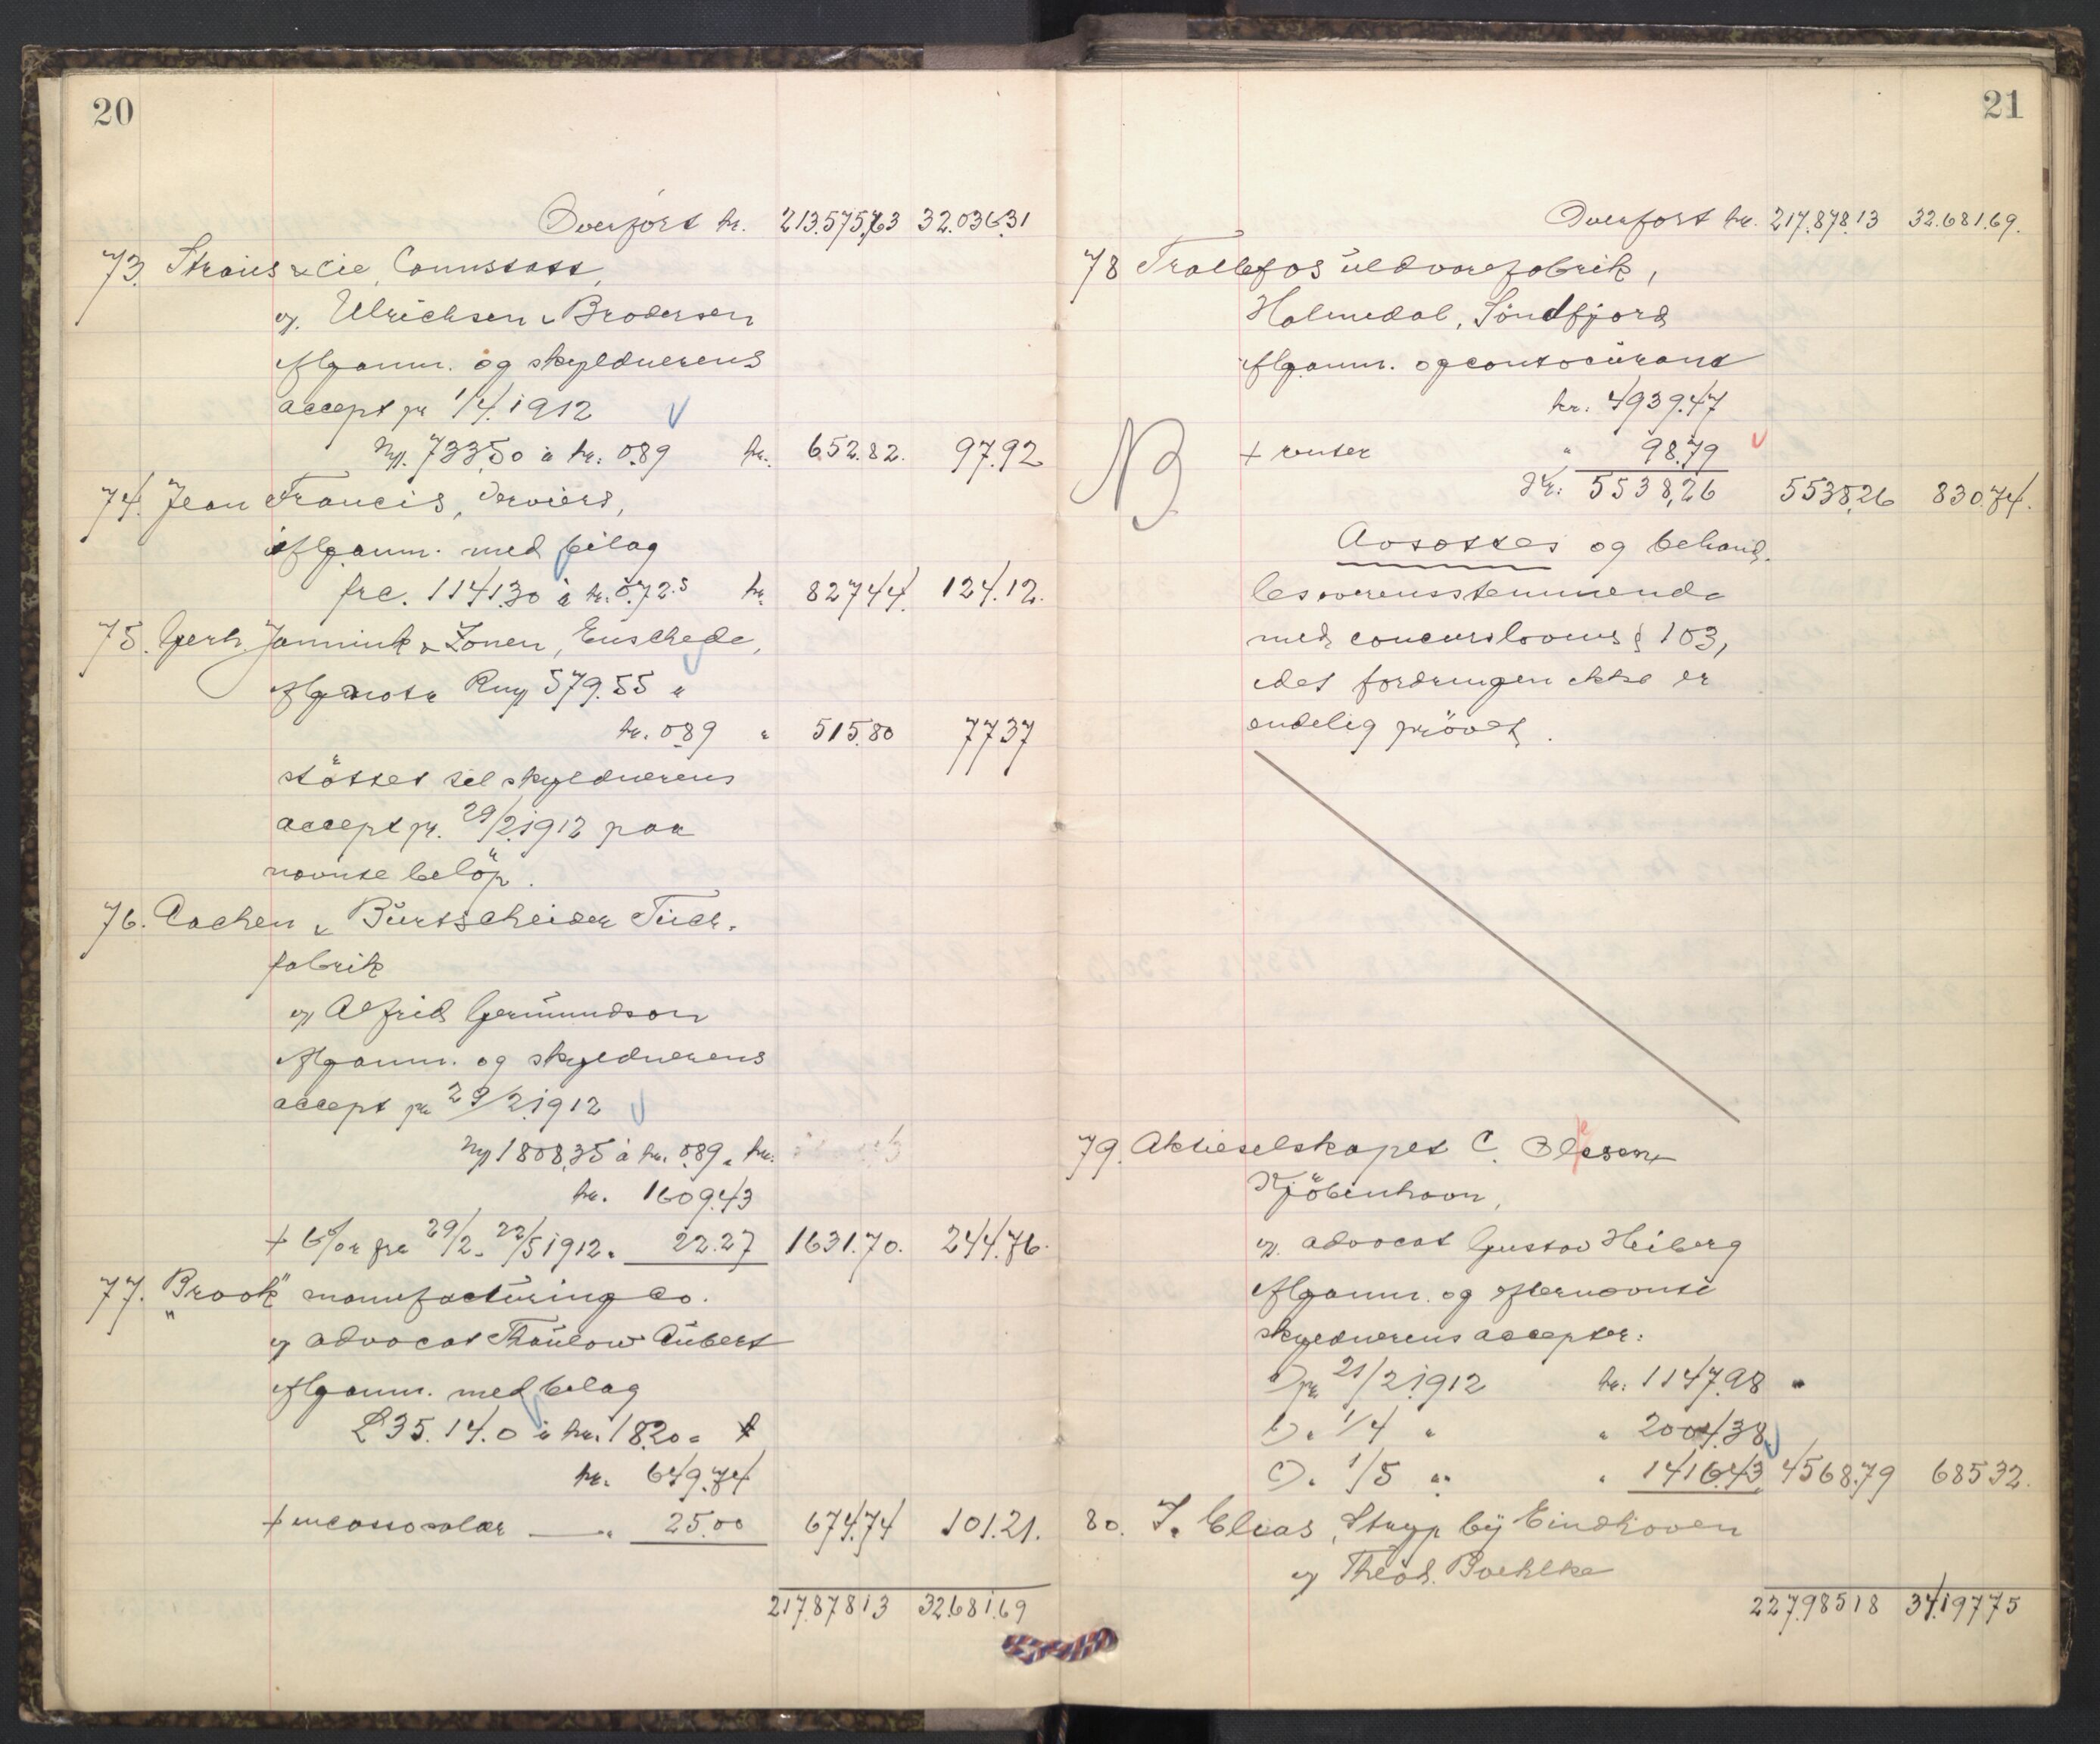 20
Overført kr. 213.575,63 32.036.31
73. Straus & Cie, Cannstatt,
v. Ulrichsen & Brodersen
Afganm. og skyldnerens
accept pr 1/4.1912
Rm. 733,50 à kr. 0.89 kr. 652.82. 97.92
74. Jean Francis, Verviers,
Afganm. med bilag
frc. 1141.30 à kr. 0.72.5 kr. 827.44. 124.12.
75. Gerh. Jannink & Zonen, Enschede,
Rm 579.55 à
kr. 0.89 " 515.80 77.37
støttet til skyldnerens
accept pr. 29/2.1912 paa
nævnte beløp.
76. Aachen & Burtscheider Tuch-
fabrik
v Alfred Germundson
Afganm. og skyldnerens
accept pr 29/2.1912
Rm 1808,35 à kr. 0.89 " kr.
kr. 1609.43
+ 6% fra 29/2 - 22/5 1912 " 22.27 1631.70. 244.76.
77. "Brook" manufacturing Co.
v advocat Thaulow Aubert
Afganm. med bilag
£ 35.14.0 à kr. 18.20 =
kr. 649.74
+ incassosalær — " 25.00 674.74 101.21.
217.878 13 32.681.69
21
Overført kr. 217.878.13 32.681.69.
78 Trollefos uldvarefabrik,
Holmedal, Söndfjord
Afganm. og contocurant
kr. 4939.47
+ renter " 98.79
NB
kr. 5538,26 5538,26 830.74.
Avsættes og behand-
les overensstemmende
med concurslovens § 103,
idet fordringen ikke er
endelig prövet.
79. Aktieselskapet C. Olesen,
Kjöbenhavn,
v. advocat Gustav Heiberg
Afganm. og efternævnte
skyldnerens accepter:
a) pr 21/2.1912 kr. 1147.98 "
b) " 1/4 " " 2004.38
c) " 1/5 " " 1416.43 4568.79 685 32.
80. J. Elias, Stryp bij Eindhoven
v Theod. Boehlke
227.985 18 34.197 75